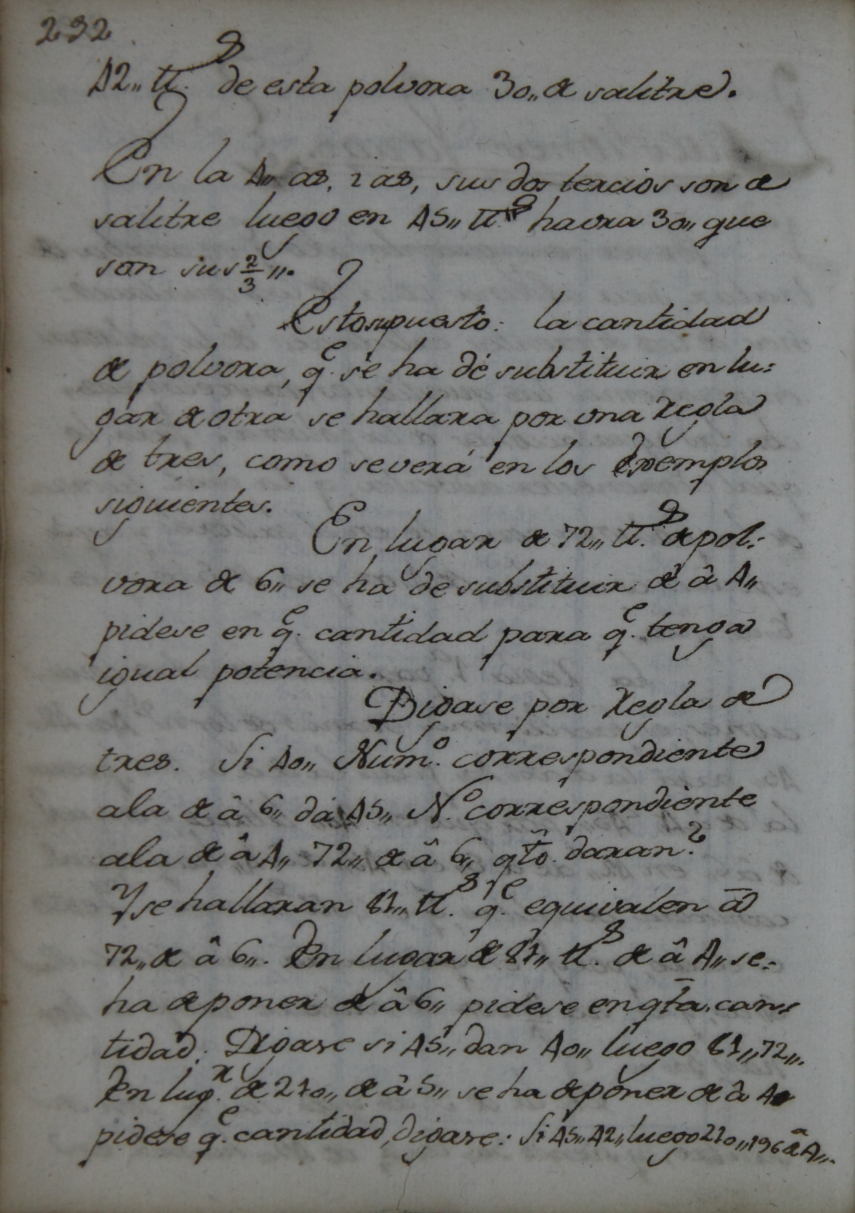 232
42,, tt.s de esta polvora 30,, de salitre.
En la 4,, as, 2 as, sus dos tercios son de
salitre luego en 45,, tt.s havra 30,, que
son sus 2/3,,.
Esto supuesto: la cantidad
de polvora, q.e se ha de substituir en lu:
gar de otra se hallara por una Regla
de tres, como se verá en los Exemplos
siguientes.
En lugar de 72,, tt.s de pol:
vora de 6,, se ha de substituir de â 4,,
pidese en q.e cantidad para q.e tenga
igual potencia.
Digase por Regla de
tres. Si 40,, Num.o correspondiente
ala de â 6,, dá 45,, N.o correspondiente
ala de â 4,, 72,, de â 6,, qto. daran?
Y se hallaran 81,, tt.s q.e equivalen â
72,, de â 6,,. En lugar de 81,, tt.s de â 4,, se:
ha de poner de â 6,, pidese en qta. can:
tidad. Digase si 45,, dan 40,, luego 81,, 72,,.
En lug.r de 210,, de â 5,, se ha de poner de â 4
pidese q.e cantidad, digase: Si 45,, 42,, luego 210,, 196 de â 4,,.